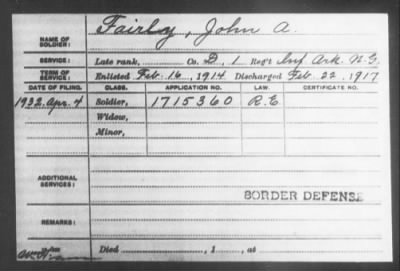 NAME OF SOLDIER: Fairley, John A.
SERVICE: Late rank, Co. D, 1 Reg't Inf Ark. N.G.
TERM OF SERVICE: Enlisted Feb. 16, 1914, Discharged Feb. 22, 1917
DATE OF FILING. CLASS. APPLICATION NO. LAW. CERTIFICATE NO.
1932, Apr. 4 Soldier, 1715360 R.E.
Widow,
Minor,
ADDITIONAL SERVICES:
BORDER DEFENSE
REMARKS:
Died , 1 , at